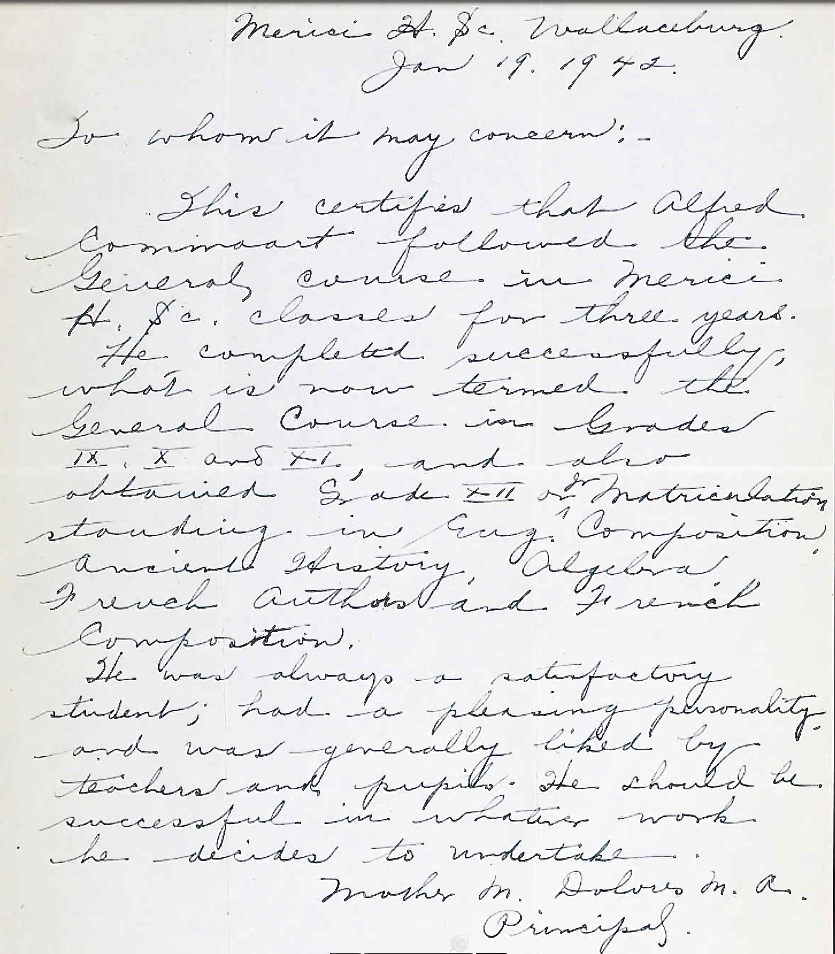 Merici H. Sc. Wallaceburg.
Jan 19. 1942.
To whom it may concern:-
This certifies that Alfred
Commoart followed the
General course in Merici
H. Sc. classes for three years.
He completed successfully,
what is now termed the
General Course in Grades
IX, X and XI, and also
obtained Grade XII or Jr Matriculation
standing in Eng. Composition,
Ancient History, Algebra,
French Authors and French
Composition.
He was always a satisfactory
student; had a pleasing personality
and was generally liked by
teachers and pupils. He should be
successful in whatever work
he decides to undertake.
Mother M. Dolores M. A.
Principal.